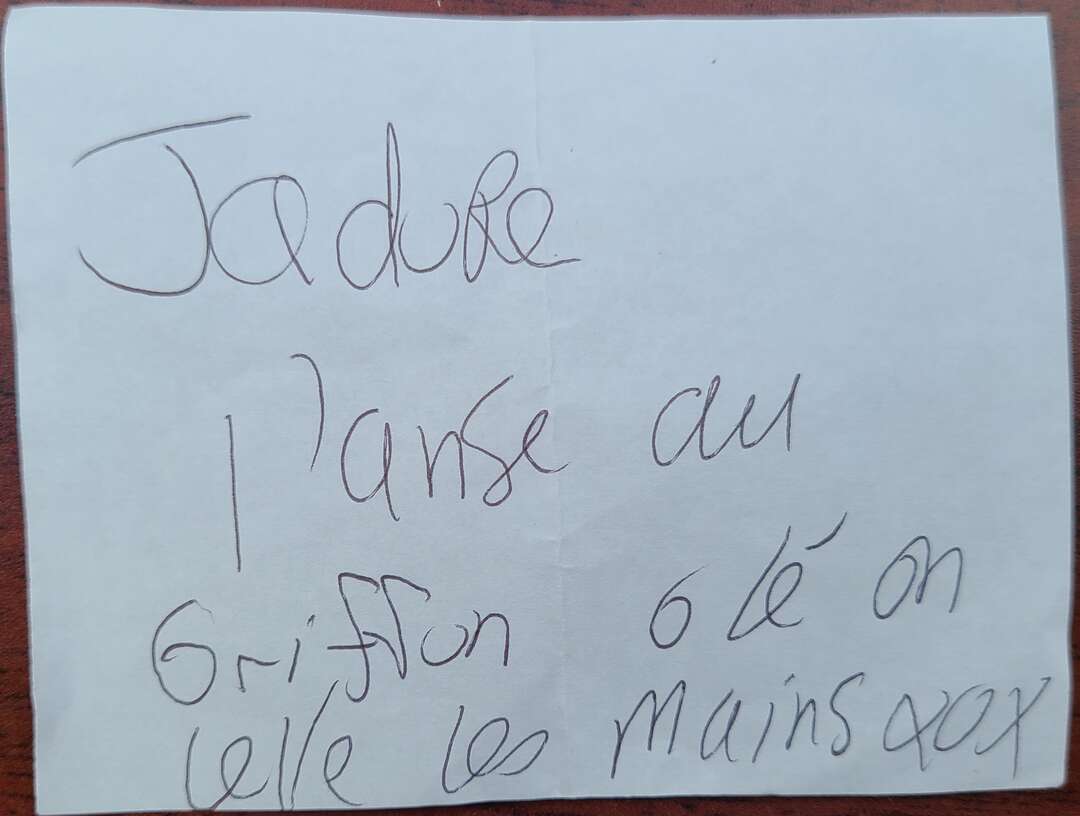 Jadore
l'anse au
Griffon olé on
lelve les mains xox